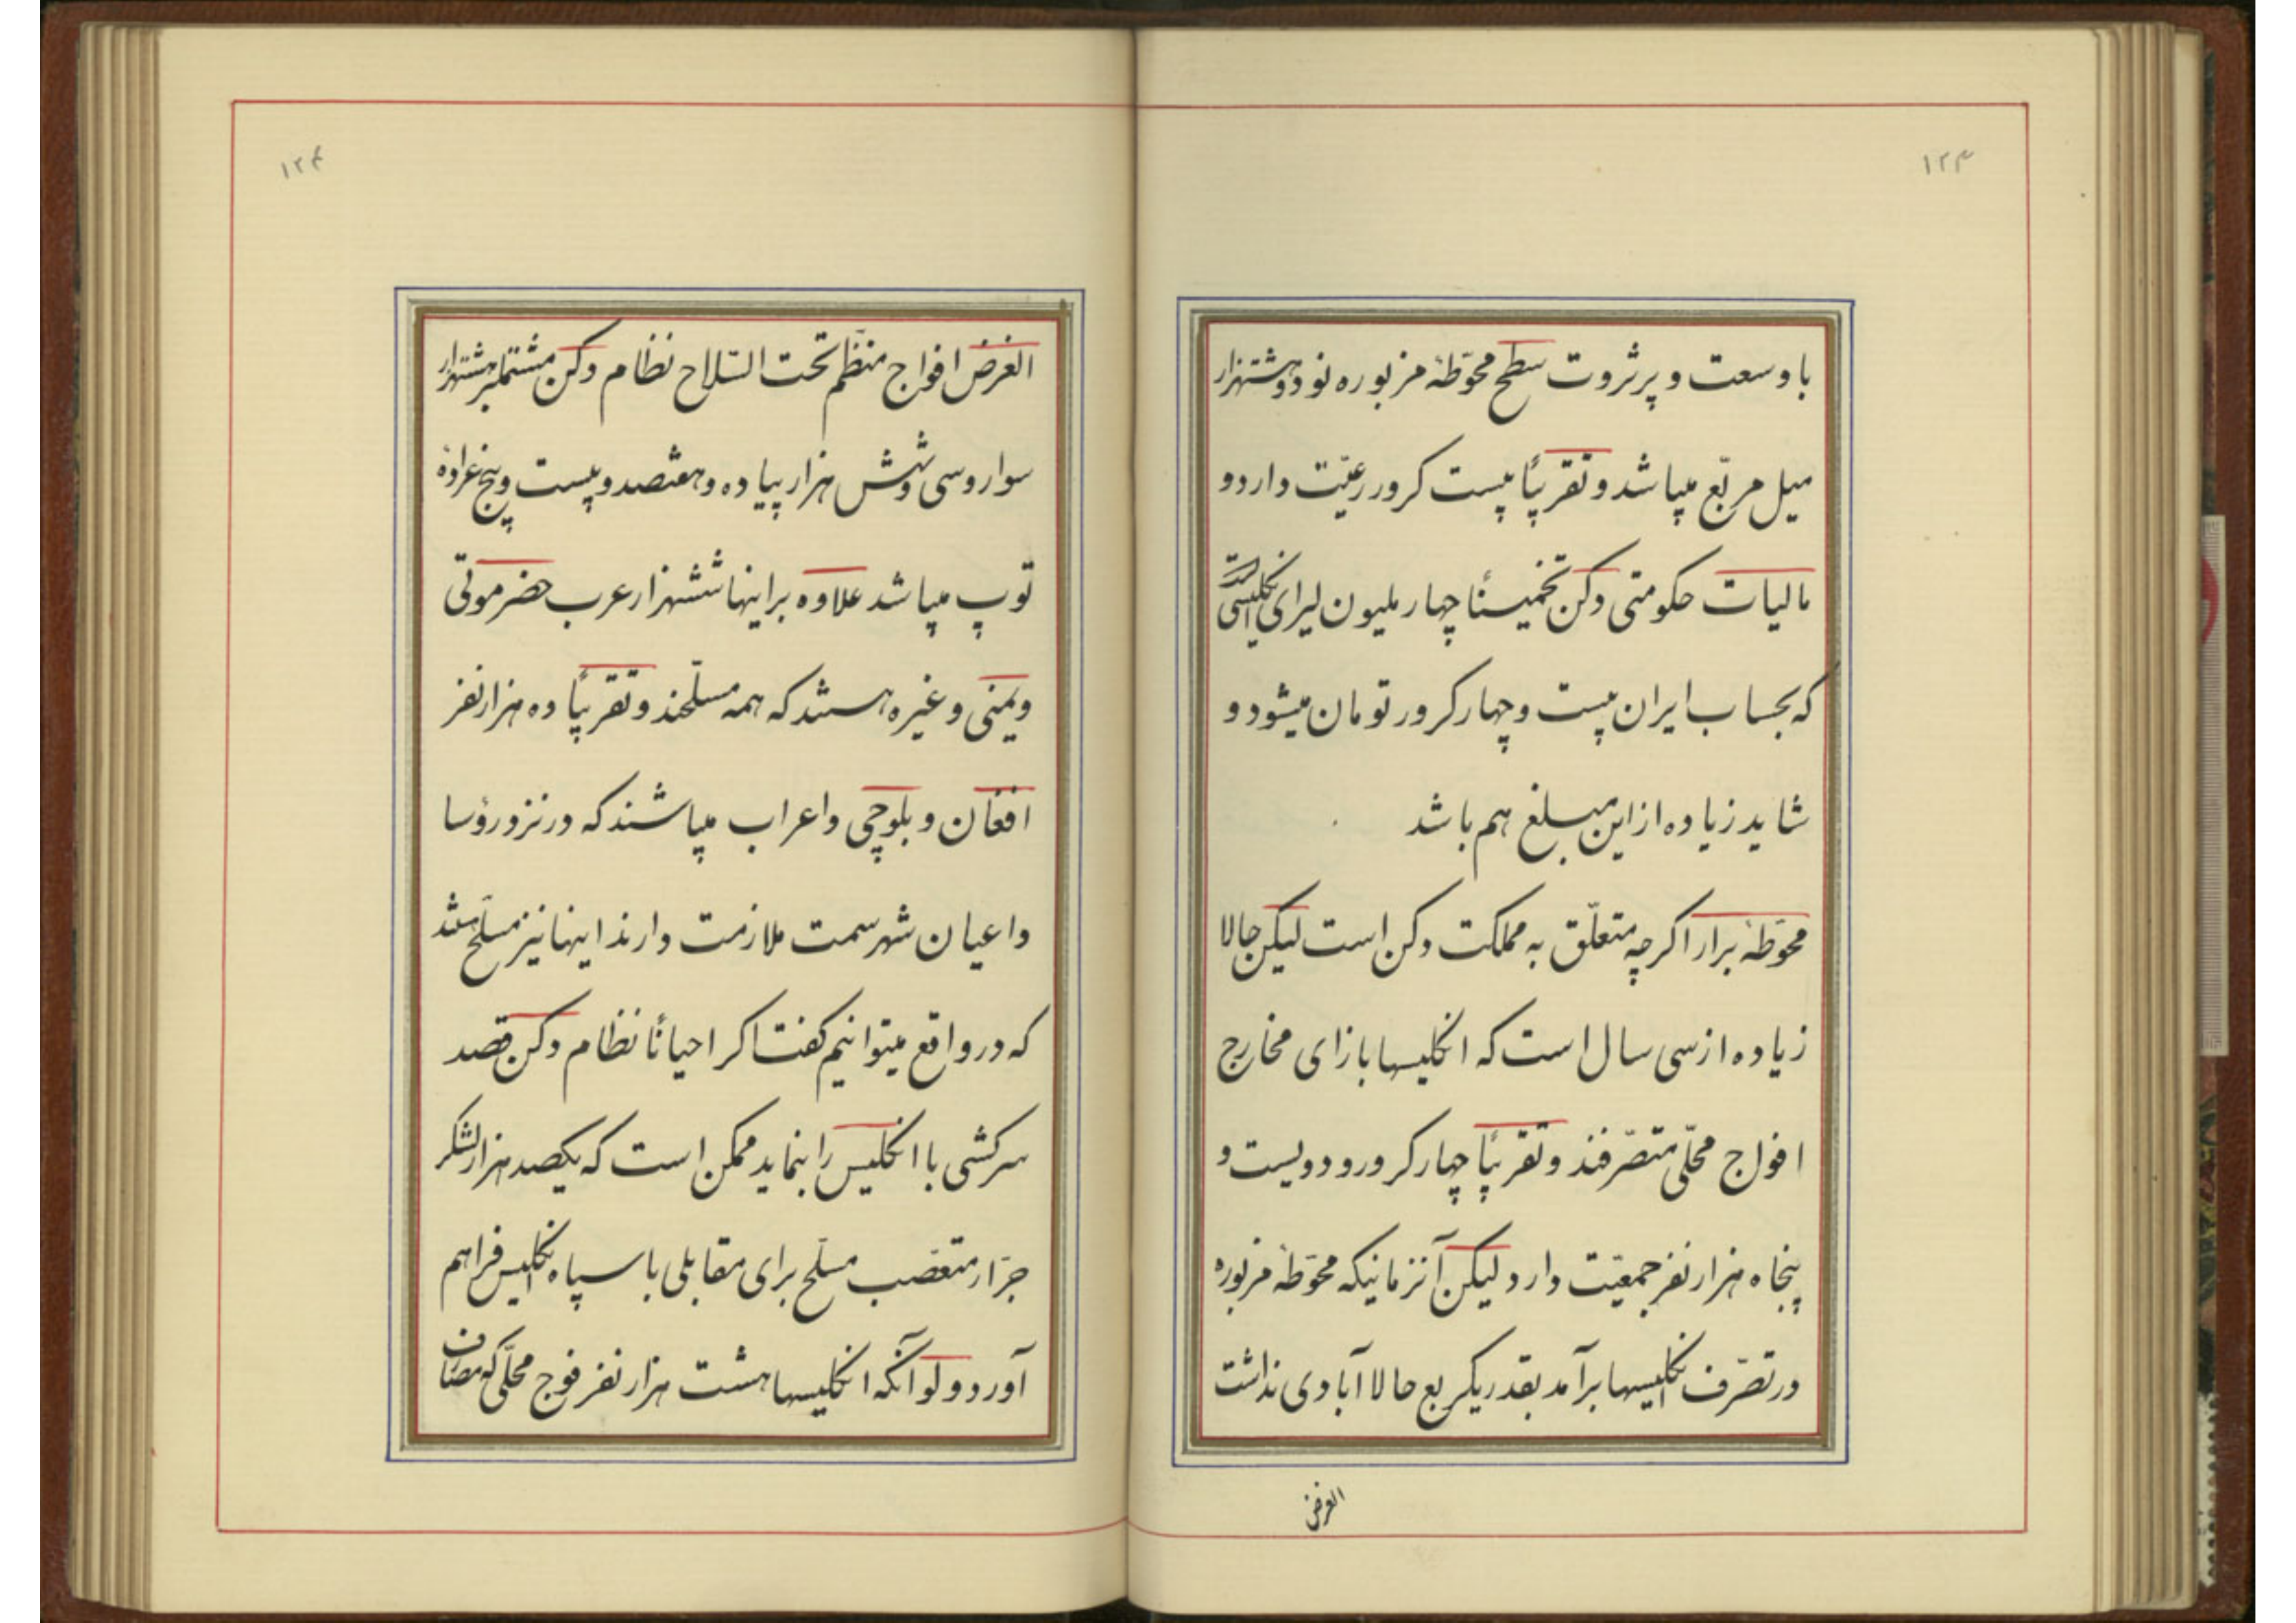 ۱۲۳
با وسعت و پر ثروت سطح محوّطهٔ مزبوره نود و هشتهزار
میل مربّع میباشد و تقریبًا بیست کرور رعیّت دارد و
مالیات حکومتی دکن تخمینًا چهار ملیون لیرای انگلیسی است
که بحساب ایران بیست و چهار کرور تومان میشود و
شاید زیاده از این مبلغ هم باشد
محوّطهٔ برار اگرچه متعلّق به مملکت دکن است لیکن حالا
زیاده از سی سال است که انگلیسها بازای مخارج
افواج محلّی متصرّفند و تقریبًا چهار کرور و دویست و
پنجاه هزار نفر جمعیّت دارد لیکن آنزمانیکه محوّطهٔ مزبوره
در تصرّف انگلیسها برآمد بقدر یکربع حالا آبادی نداشت
الغرض
۱۲۴
الغرض افواج منظّم تحت السّلاح نظام دکن مشتملبر هشتهزار
سوار و سی و شش هزار پیاده و هفتصد و بیست و پنج عرادهٔ
توپ میباشد علاوه بر اینها ششهزار عرب حضرموتی
و یمنی و غیره هستند که همه مسلّحند و تقریبًا ده هزار نفر
افغان و بلوچی و اعراب میباشند که در نزد رؤسا
و اعیان شهر سمت ملازمت دارند اینها نیز مسلّح هستند
که در واقع میتوانیم گفت اگر احیانًا نظام دکن قصد
سرکشی با انگلیس را بنماید ممکن است که یکصد هزار لشکر
جرّار متعصّب مسلّح برای مقابلی با سپاه انگلیس فراهم
آورد و لو آنکه انگلیسها هشت هزار نفر فوج محلّی که